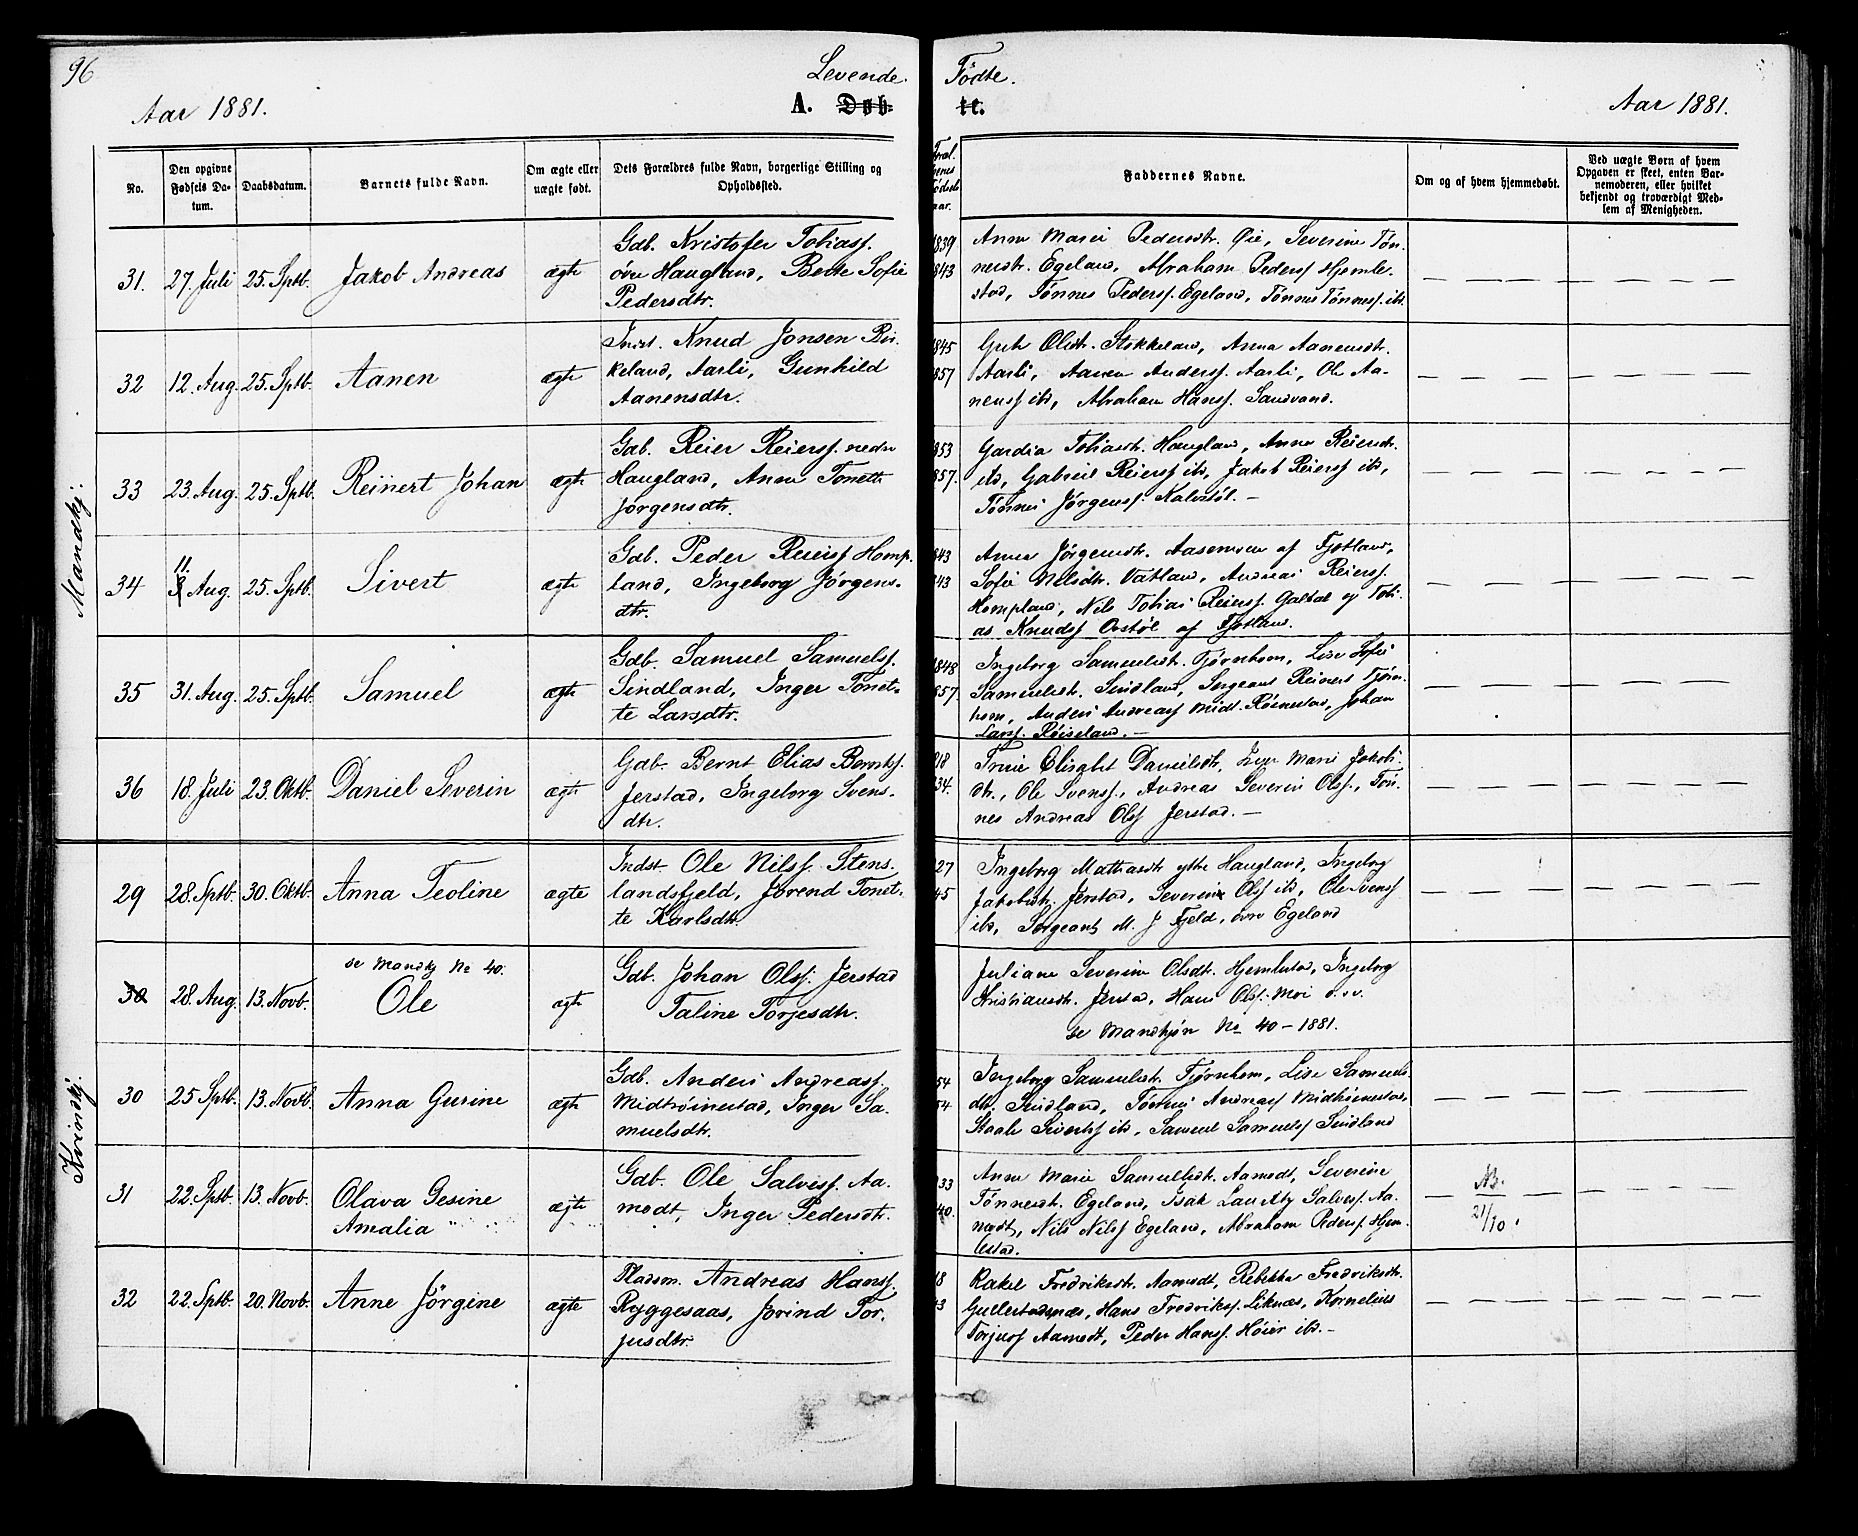 96
Levende Fødte.
Aar 1881.
A. Døbte.
Aar 1881.
No.
Den opgivne Fødsels Datum.
Daabsdatum.
Barnets fulde Navn.
Om ægte eller uægte født.
Dets Forældres fulde Navn, borgerlige Stilling og Opholdssted.
Faddernes Navne.
Om og af hvem hjemmedøbt.
Ved uægte Børn af hvem Opgaven er skeet, enten Barnemoderen, eller hvilket bekjendt og troværdigt Medlem af Menigheden.
Mandkj:
31. 27. Juli 25. Sptb. Jakob Andreas ægte
Gdb. Kristofer Tobiass.
øvre Haugland, Berte Sofie
Pedersdtr.
1839
1843
Anna Marie Pedersdtr. Øie, Severine Tøn-
nesdtr. Egeland, Abraham Pederss Hjemle-
stad, Tønnes Pederss. Egeland, Tønnes Tønness. ibd.
32 12. Aug. 25. Sptb. Aanen ægte
Indst. Knud Jonsen Bir-
keland, Aarli, Gunhild
Aanensdtr.
1845
1857
Olsdtr. Stokkeland, Anna Aanensdtr.
Aarli, Aanen Anderss. Aarli, Ole Aa-
nenss ibd, Abraham Hanss. Sandvand.
33 23. Aug. 25. Sptb. Reinert Johan ægte
Gdb. Reier Reierss. nedre
Haugland, Anna Tonette
Jørgensdtr.
853
857.
Gardia Tobiasdtr. Haugland, Anna Reiersdtr.
ibd, Gabriel Reierss ibd, Jakob Reierss ibd,
Tønnes Jørgenss. Kalvstøl. –
34 11. Aug. 25. Sptb. Sivert ægte
Gdb. Peder Reierss Homp-
land, Ingeborg Jørgens-
dtr.
843
843
Anna Jørgensdtr. Aasemoen af Fjotland,
Sofie Nilsdtr. Vatland, Andreas Reierss.
Hompland, Nils Tobias Reierss. Galdal og Tobi-
as Knudss Ovstøl af Fjotland.
35 31. Aug. 25. Sptb. Samuel ægte
Gdb. Samuel Samuelss.
Sindland, Inger Tonet-
te Larsdtr.
1848
857.
Ingeborg Samuelsdtr. Tjørnhom, Lise Sofie
Samuelsdtr. Sindland, Sergeant Reinert Tjørn-
hom, Anders Andreass Midt-Røinestad, Johan
Larss. Røiseland. –
36 18. Juli 23. Oktb. Daniel Severin ægte
Gdb. Bernt Elias Berntss.
Jerstad, Ingeborg Svens-
dtr.
818
834.
Trine Elisabet Danielsdtr, Marie Jakobs-
dtr., Ole Svenss., Andreas Severin Olss., Tøn-
nes Andreas Olss Jerstad. –
Kvindkj.
29 28. Sptb. 30. Oktb. Anna Teoline ægte
Indst. Ole Nilss. Stens-
landsfjeld, Jørend Tonet-
te Karlsdtr.
27
45
Ingeborg Mathiasdtr ytre Haugland, Ingeborg
Jakobsdtr. Jerstad, Severin Olss ibd, Ole Svenss
ibd, Sergeant M. J Fjeld, øvre Egeland
se Mandkj No 40.
30 28. Aug. 13. Novb. Ole ægte
Gdb. Johan Olss. Jerstad
Taline Torjesdtr.
Juliane Severine Olsdtr. Hjemlestad, Ingeborg
Kristiansdtr. Jerstad, Hans Olss. Moi o.s.v.
se Mandkjøn No 40 – 1881.
30 25 Sptb. 13. Novb. Anna Gusine ægte
Gdb. Anders Andreass.
Midtrøinestad, Inger Sa-
muelsdtr.
54
54
Ingeborg Samuelsdtr. Tjørnhom, Lise Samuels-
dtr. Sindland, Tønnes Andreass Midtrøinestad,
Staale Sivertss ibd, Samuel Samuelss Sindland
31 22. Sptb. 13. Novb. Olava Gesine
Amalia ægte
Gdb. Ole Salvess. Aa-
modt, Inger Pedersdtr.
33
40.
Anna Marie Samuelsdtr. Aamodt, Severine
Tønnesdtr. Egeland, Isak Lauritz Salvess. Aa-
modt, Nils Nilss Egeland, Abraham Pederss Hjem-
lestad.
NB.
21/10.
32 22. Sptb. 20. Novb. Anne Jörgine ægte
Pladsm. Andreas Hanss.
Ryggesaas, Jørind Tor-
jusdtr.
18
43
Rakel Fredriksdtr. Aamodt, Rebekka Fredriksdtr.
Gullestadsnæs, Hans Fredrikss. Liknæs, Kornelius
Torjuss Aamodt, Peder Hanss. Höier ibd. –